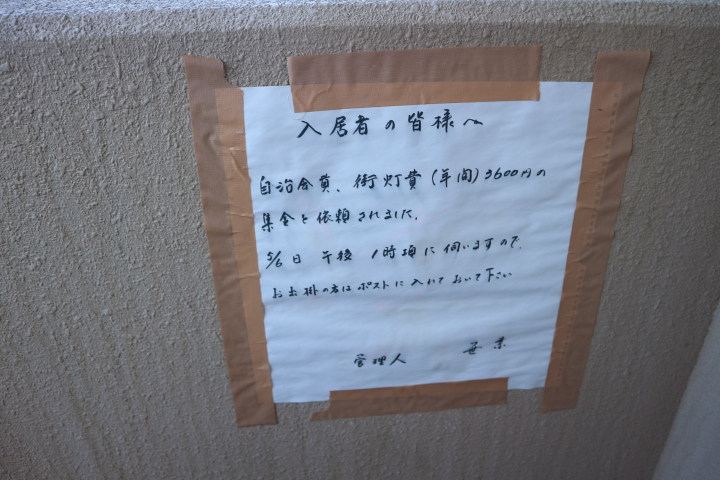 入居者の皆様へ
自治会費、街灯費(年間)3600円の
集金を依頼されました。
5/6日 午後 1時頃に伺いますので、
お出掛の方はポストに入れておいて下さい
管理人